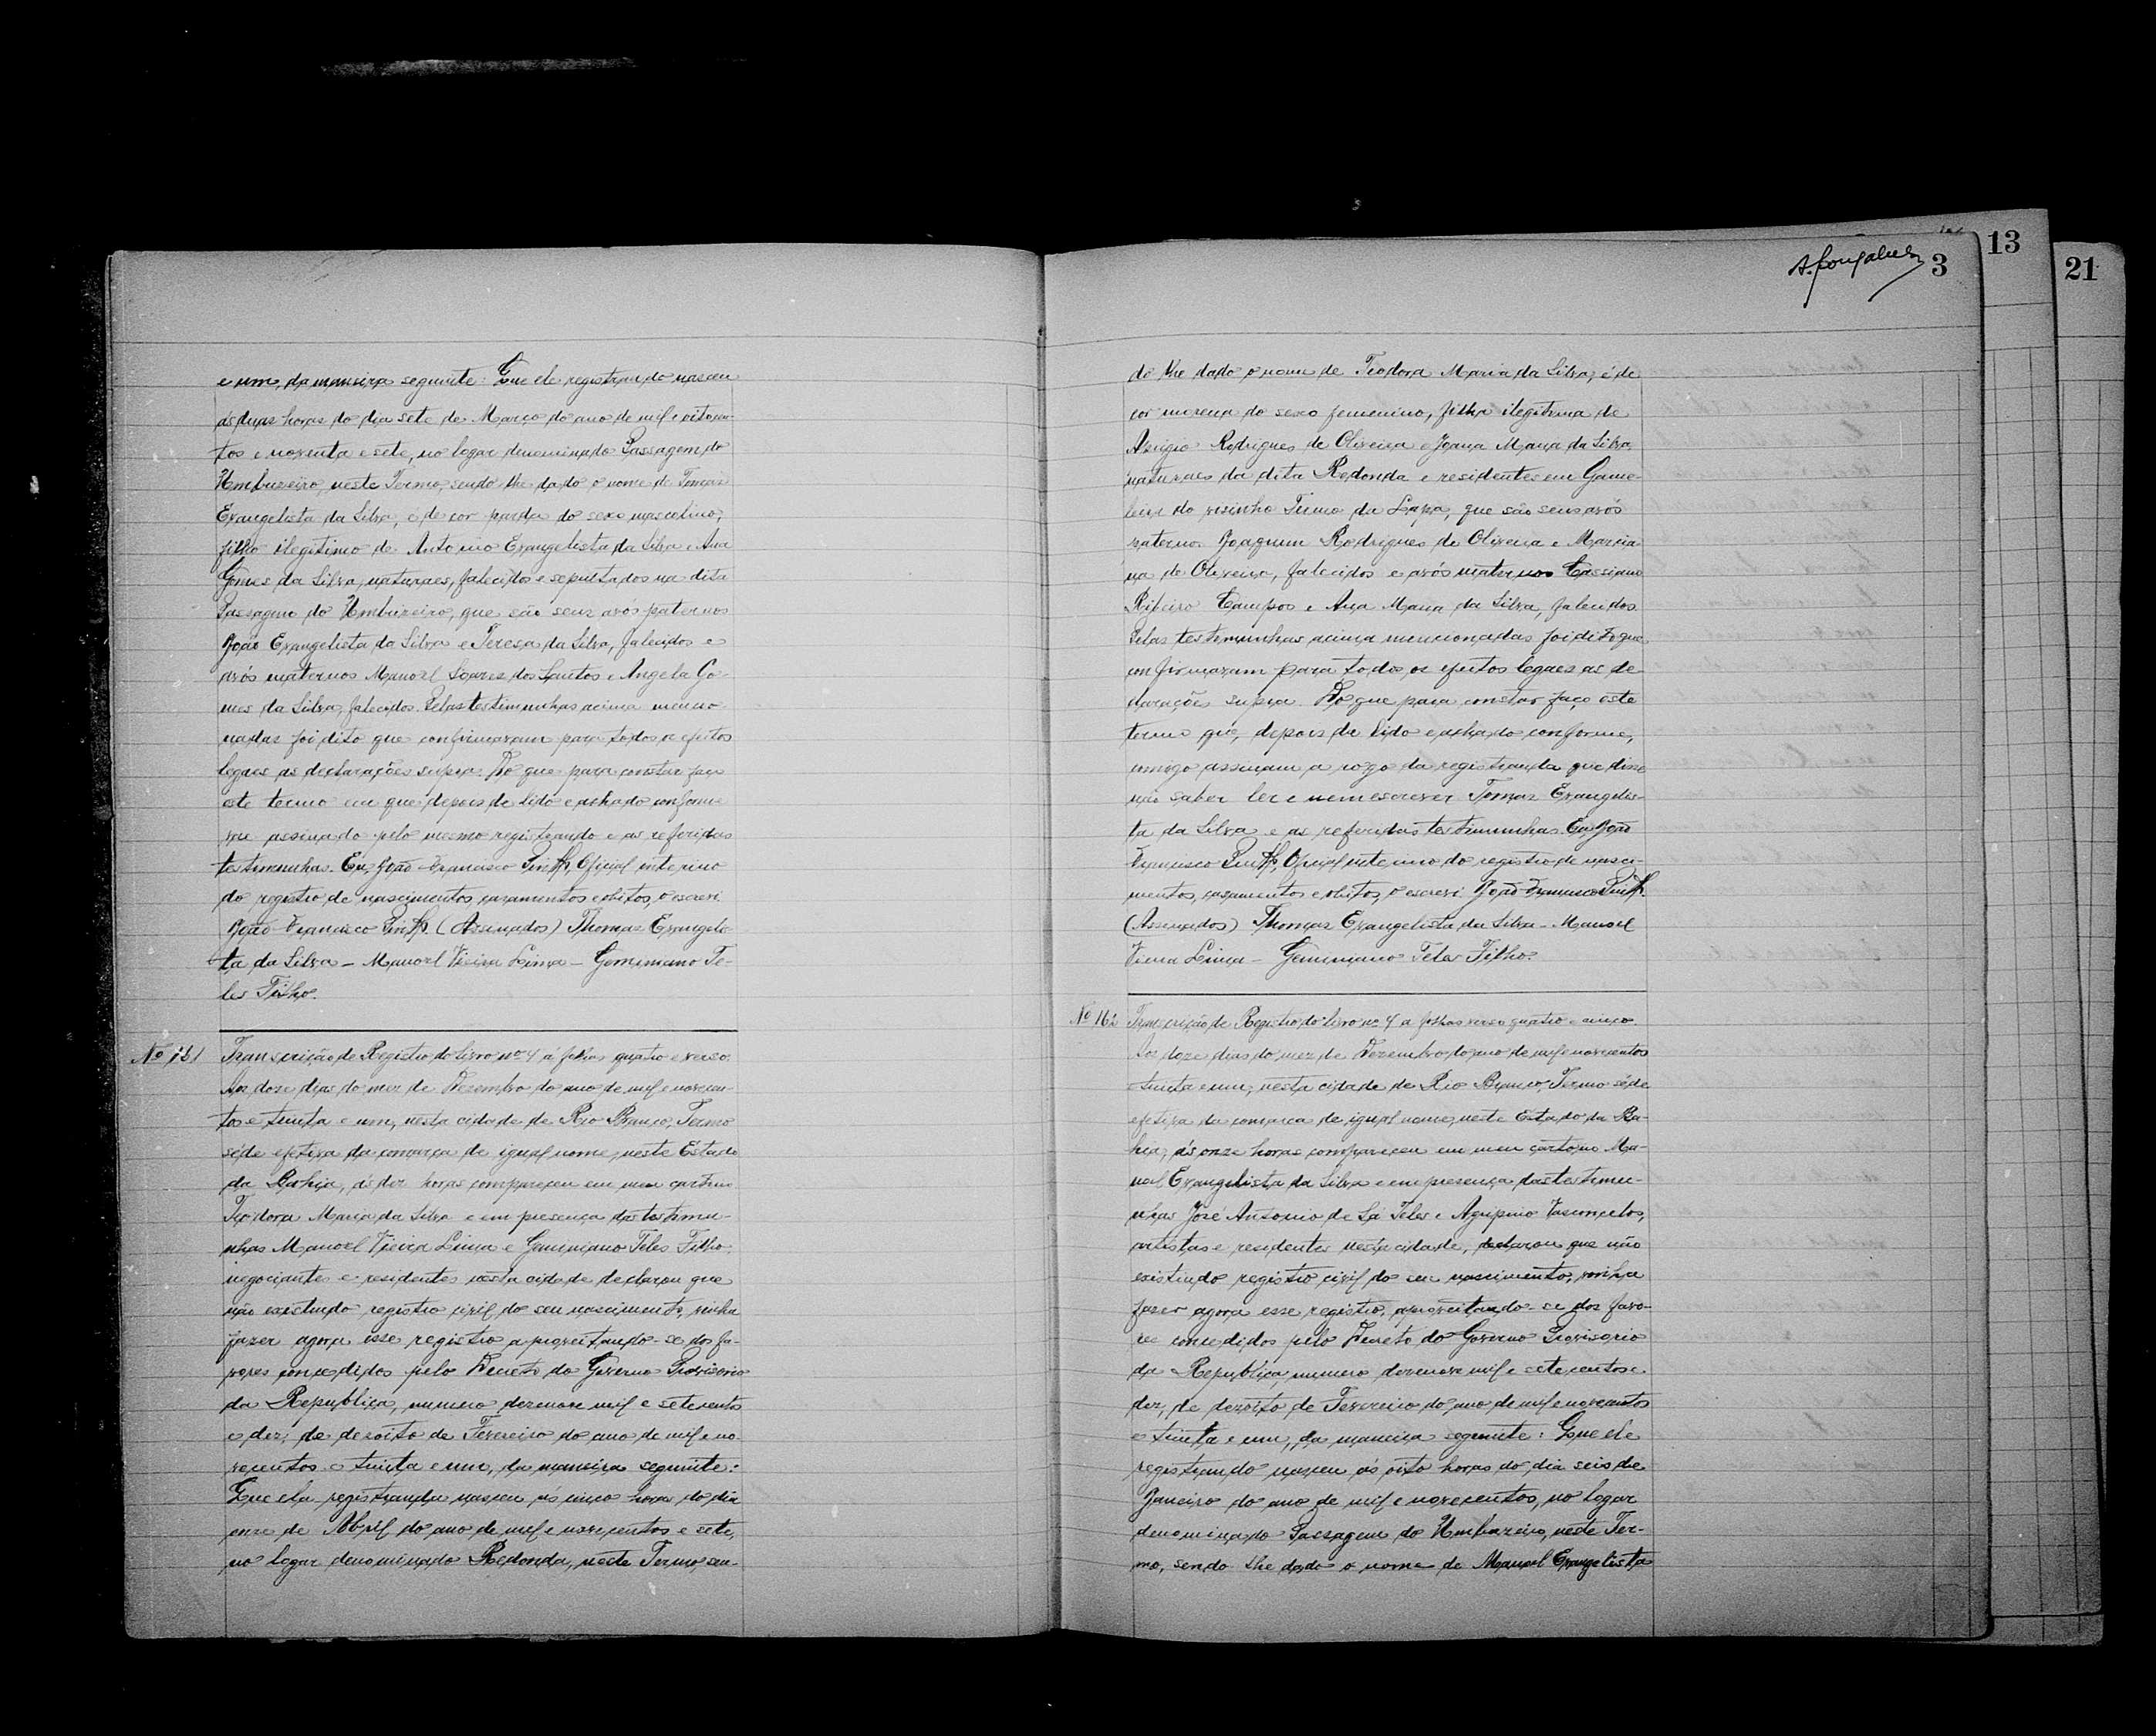 e um, da maneira seguinte: Que ele registrando nasceu
ás duas horas do dia sete de Março do ano de mil e oitocen-
tos e noventa e sete, no logar denominado Passagem do
Umbuzeiro, neste Termo, sendo lhe dado o nome de Tomaz
Evangelista da Silva, é de cor parda do sexo masculino,
filho ilegitimo de Antonio Evangelista da Silva e Ana
Gomes da Silva, naturaes, falecidos e sepultados na dita
Passagem do Umbuzeiro, que são seus avós paternos
João Evangelista da Silva e Tereza da Silva, falecidos e
avós maternos Manoel Soares dos Santos e Angela Go-
mes da Silva, falecidos. Pelas testimunhas acima mencio-
nadas foi dito que confirmavam para todos os efeitos
legaes as declarações supra. Do que para constar faço
este termo em que depois de lido e achado conforme
vae assinado pelo mesmo registrando e as referidas
testimunhas. Eu, João Francisco Oficial interino
do registro de nascimentos, casamentos e obitos, o escrevi.
João Francisco (Assinados) Thomaz Evangelis-
ta da Silva – Manoel Vieira Lima – Geminiano Te-
les Filho.
No 161 Transcrição de Registro do livro no 4 á folhas quatro e verso.
Aos doze dias do mez de Dezembro do ano de mil e novecen-
tos e trinta e um, nesta cidade de Rio Branco, Termo
séde efetiva da comarca de igual nome, neste Estado
da Bahia, ás dez horas compareceu em meu cartorio
Teodora Maria da Silva e em presença das testimu-
nhas Manoel Vieira Lima e Geminiano Teles Filho,
negociantes e residentes nesta cidade declarou que
não existindo registro civil do seu nascimento, vinha
fazer agora esse registro aproveitando-se dos fa-
vores concedidos pelo Decreto do Governo Provisorio
da Republica, numero dezenove mil e setecentos
e dez, de dezoito de Fevereiro do ano de mil e no-
vecentos e trinta e um, da maneira seguinte:
Que ela registranda nasceu ás cinco horas do dia
onze de Abril do ano de mil e novecentos e sete,
no logar denominado Redonda, neste Termo, sen-
A. Gonçalves 3
13
21
do lhe dado o nome de Teodora Maria da Silva, é de
cor morena do sexo femenino, filha ilegitima de
Rodrigues de Oliveira e Joana Maria da Silva,
naturaes da dita Redonda e residentes em Game-
leira do visinho Termo da Lapa, que são seus avós
paternos Joaquim Rodrigues de Oliveira e Marcia-
na de Oliveira, falecidos e avós maternos Cassiano
Ribeiro Campos e Ana Maria da Silva, falecidos.
Pelas testemunhas acima mencionadas foi dito que
confirmavam para todos os efeitos legaes as de-
clarações supra. Do que para constar faço este
termo que, depois de lido e achado conforme,
comigo assinam a rogo da registranda que disse
não saber ler e nem escrever Tomaz Evangelis-
ta da Silva e as referidas testimunhas. Eu, João
Francisco Oficial interino do registro de nasci-
mentos, casamentos e obitos, o escrevi. João Francisco
(Assinados) Thomaz Evangelista da Silva – Manoel
Vieira Lima – Geminiano Teles Filho.
No 162 Transcrição de Registro do livro no 4 a folhas verso quatro e cinco.
Aos doze dias do mez de Dezembro do ano de mil e novecentos
trinta e um, nesta cidade de Rio Branco, Termo séde
efetiva da comarca de igual nome, neste Estado da Ba-
hia, ás onze horas compareceu em meu cartorio Ma-
noel Evangelista da Silva e em presença das testemu-
nhas José Antonio de Sá Teles e Agripino Vasconcelos,
artistas e residentes nesta cidade, declarou que não
existindo registro civil do seu nascimento, vinha
fazer agora esse registro, aproveitando-se dos favo-
res concedidos pelo Decreto do Governo Provisorio
da Republica, numero dezenove mil e setecentos e
dez, de dezoito de Fevereiro do ano de mil e novecentos
e trinta e um, da maneira seguinte: Que ele
registrando nasceu ás oito horas do dia seis de
Janeiro do ano de mil e novecentos, no logar
denominado Passagem do Umbuzeiro, neste Ter-
mo, sendo lhe dado o nome de Manoel Evangelista